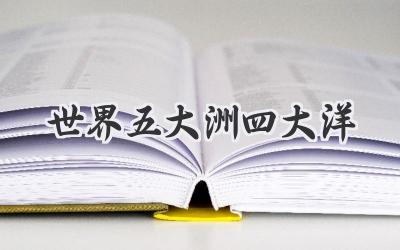 世界五大洲四大洋